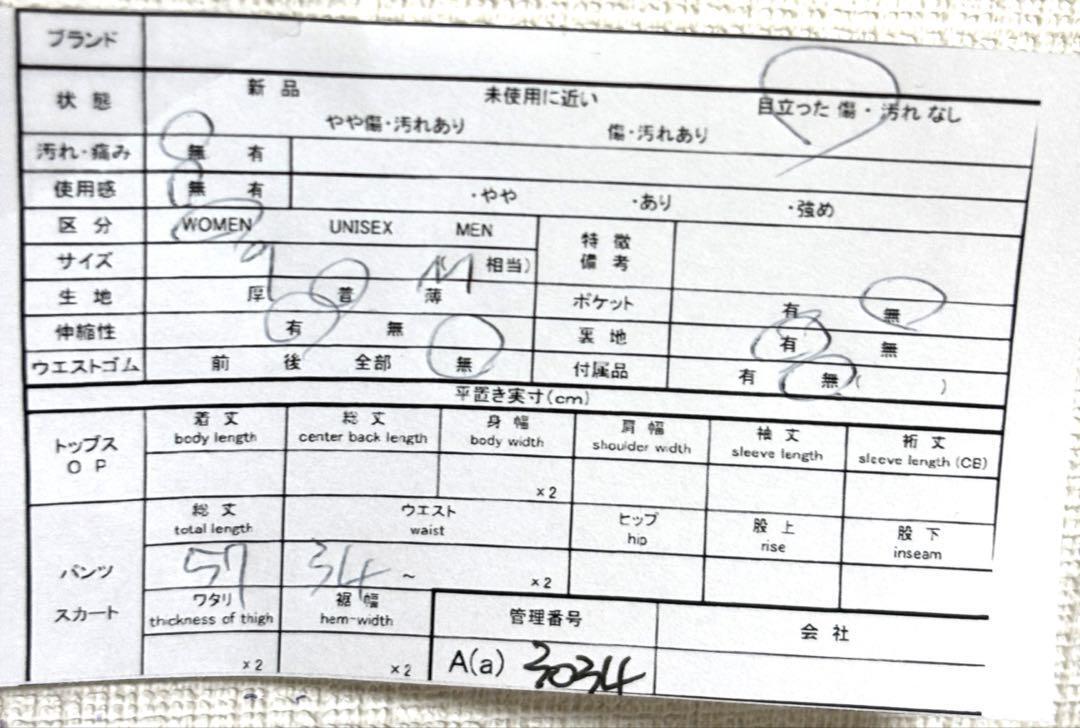 ブランド
状態 新品 未使用に近い 目立った 傷・汚れ なし
やや傷・汚れあり 傷・汚れあり
汚れ・痛み 無 有
使用感 無 有 ・やや ・あり ・強め
区分 WOMEN UNISEX MEN 特徴 備考
サイズ 9 ( M 相当)
生地 厚 普 薄 ポケット 有 無
伸縮性 有 無 裏地 有 無
ウエストゴム 前 後 全部 無 付属品 有 無 ( )
平置き実寸(cm)
トップス OP
着丈 総丈 身幅 肩幅 袖丈 裄丈
body length center back length body width shoulder width sleeve length sleeve length (CB)
×2
パンツ スカート
総丈 ウエスト ヒップ 股上 股下
total length waist hip rise inseam
57 34 ~ ×2
ワタリ 裾幅 管理番号 会社
thickness of thigh hem-width
×2 ×2 A(a) 3034